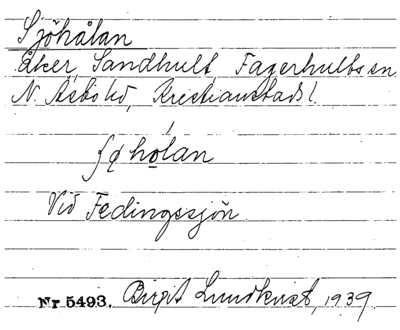 Sjöhålan
Åker, Sandhult, Fagerhults sn
N. Åsbo hd, Kristianstads l.
ʃø̨ holan
Vid Fedingssjön
Nr. 5493. Birgit Lundkvist, 1939